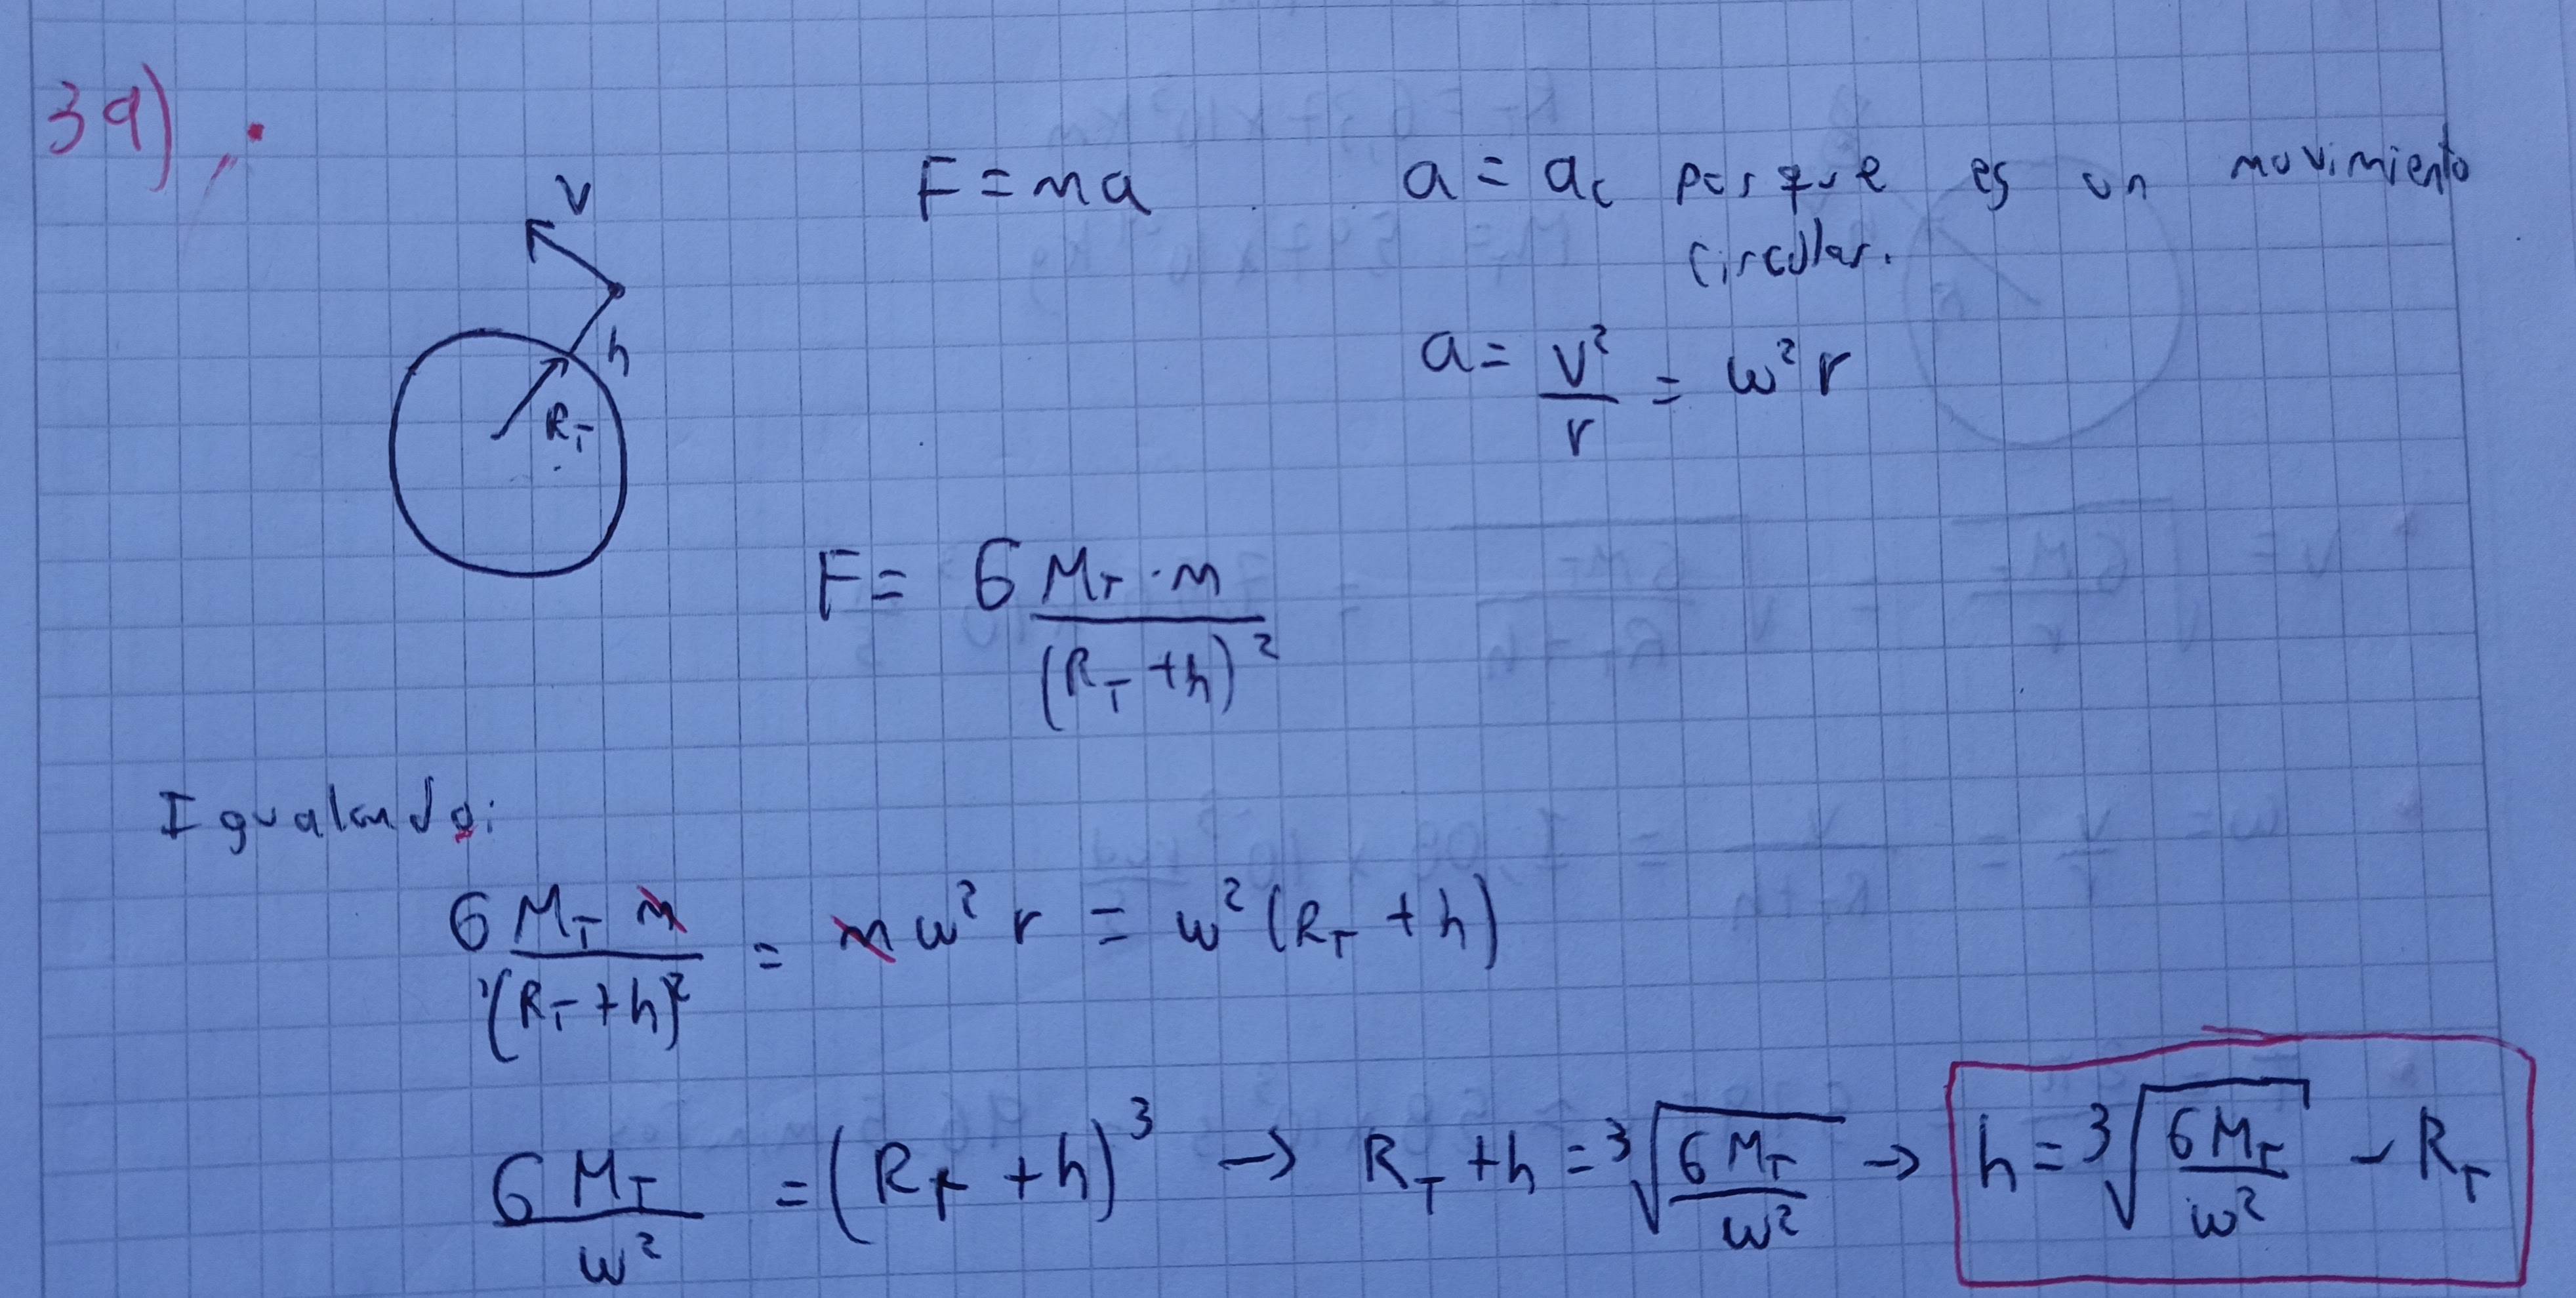 39)
V
h
R_T
F = ma
a = a_c porque es un movimiento
circular.
a = v²/r = ω² r
F = G M_T · m / (R_T + h)²
Igualando:
G M_T m / (R_T + h)² = m ω² r = ω² (R_T + h)
G M_T / ω² = (R_T + h)³ → R_T + h = ³√(G M_T / ω²) → h = ³√(G M_T / ω²) - R_T